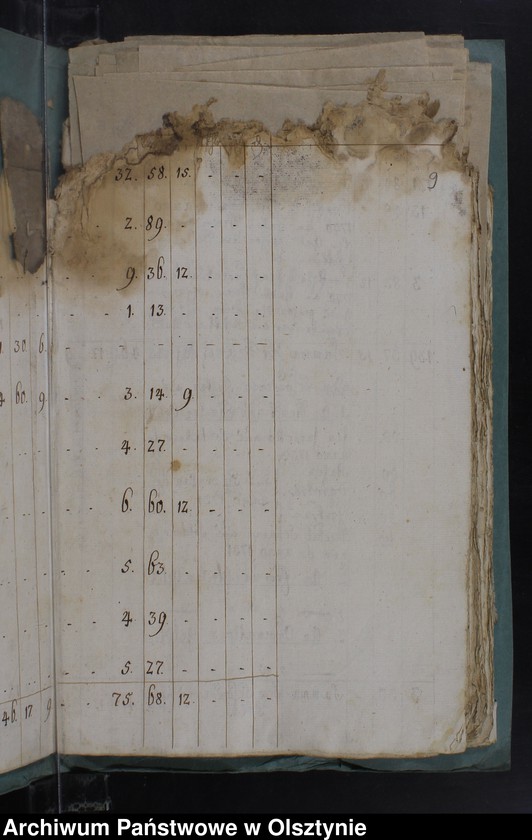 9
32. 58. 15. - - -
- - 2. 89. - - - -
- - 9. 36. 12. - - -
- - 1. 13. - - - -
30. 6. - - - - - - -
60. 9. - - 3. 14. 9. - - -
- - 4. 27. - - - -
- - 6. 60. 12. - - -
- - 5. 63. - - - -
- - 4. 39. - - - -
- - 5. 27. - - - -
46. 17. 9. - - 75. 68. 12. - - -
Archiwum Państwowe w Olsztynie